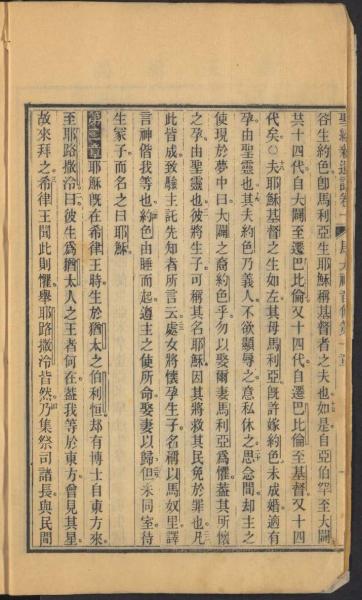 容生約色卽馬利亞生耶穌稱基督者之夫也如是自亞伯罕至大闢
共十四代自大闢至遷巴比倫又十四代自遷巴比倫至基督又十四
代矣○夫耶穌基督之生如左其母馬利亞旣許嫁約色未成婚適有
孕由聖靈也其夫約色乃義人不欲顯辱之意私休之思念間却主之
使現於夢中曰大闢之裔約色乎勿以娶爾妻馬利亞爲懼蓋其所懷
之孕由聖靈也彼將生子可稱其名耶穌因其將救其民免於罪也凡
此皆成致驗主託先知者所言云處女將懷孕生子名稱以馬奴里譯
言神偕我等也約色由睡而起遵主之使所命娶妻以歸但未同室待
生冢子而名之曰耶穌
第二章 耶穌旣在希律王時生於猶太之伯利恒却有博士自東方來
至耶路撒冷曰彼生爲猶太人之王者何在蓋我等於東方曾見其星
故來拜之希律王聞此則懼舉耶路撒冷皆然乃集祭司諸長與民間